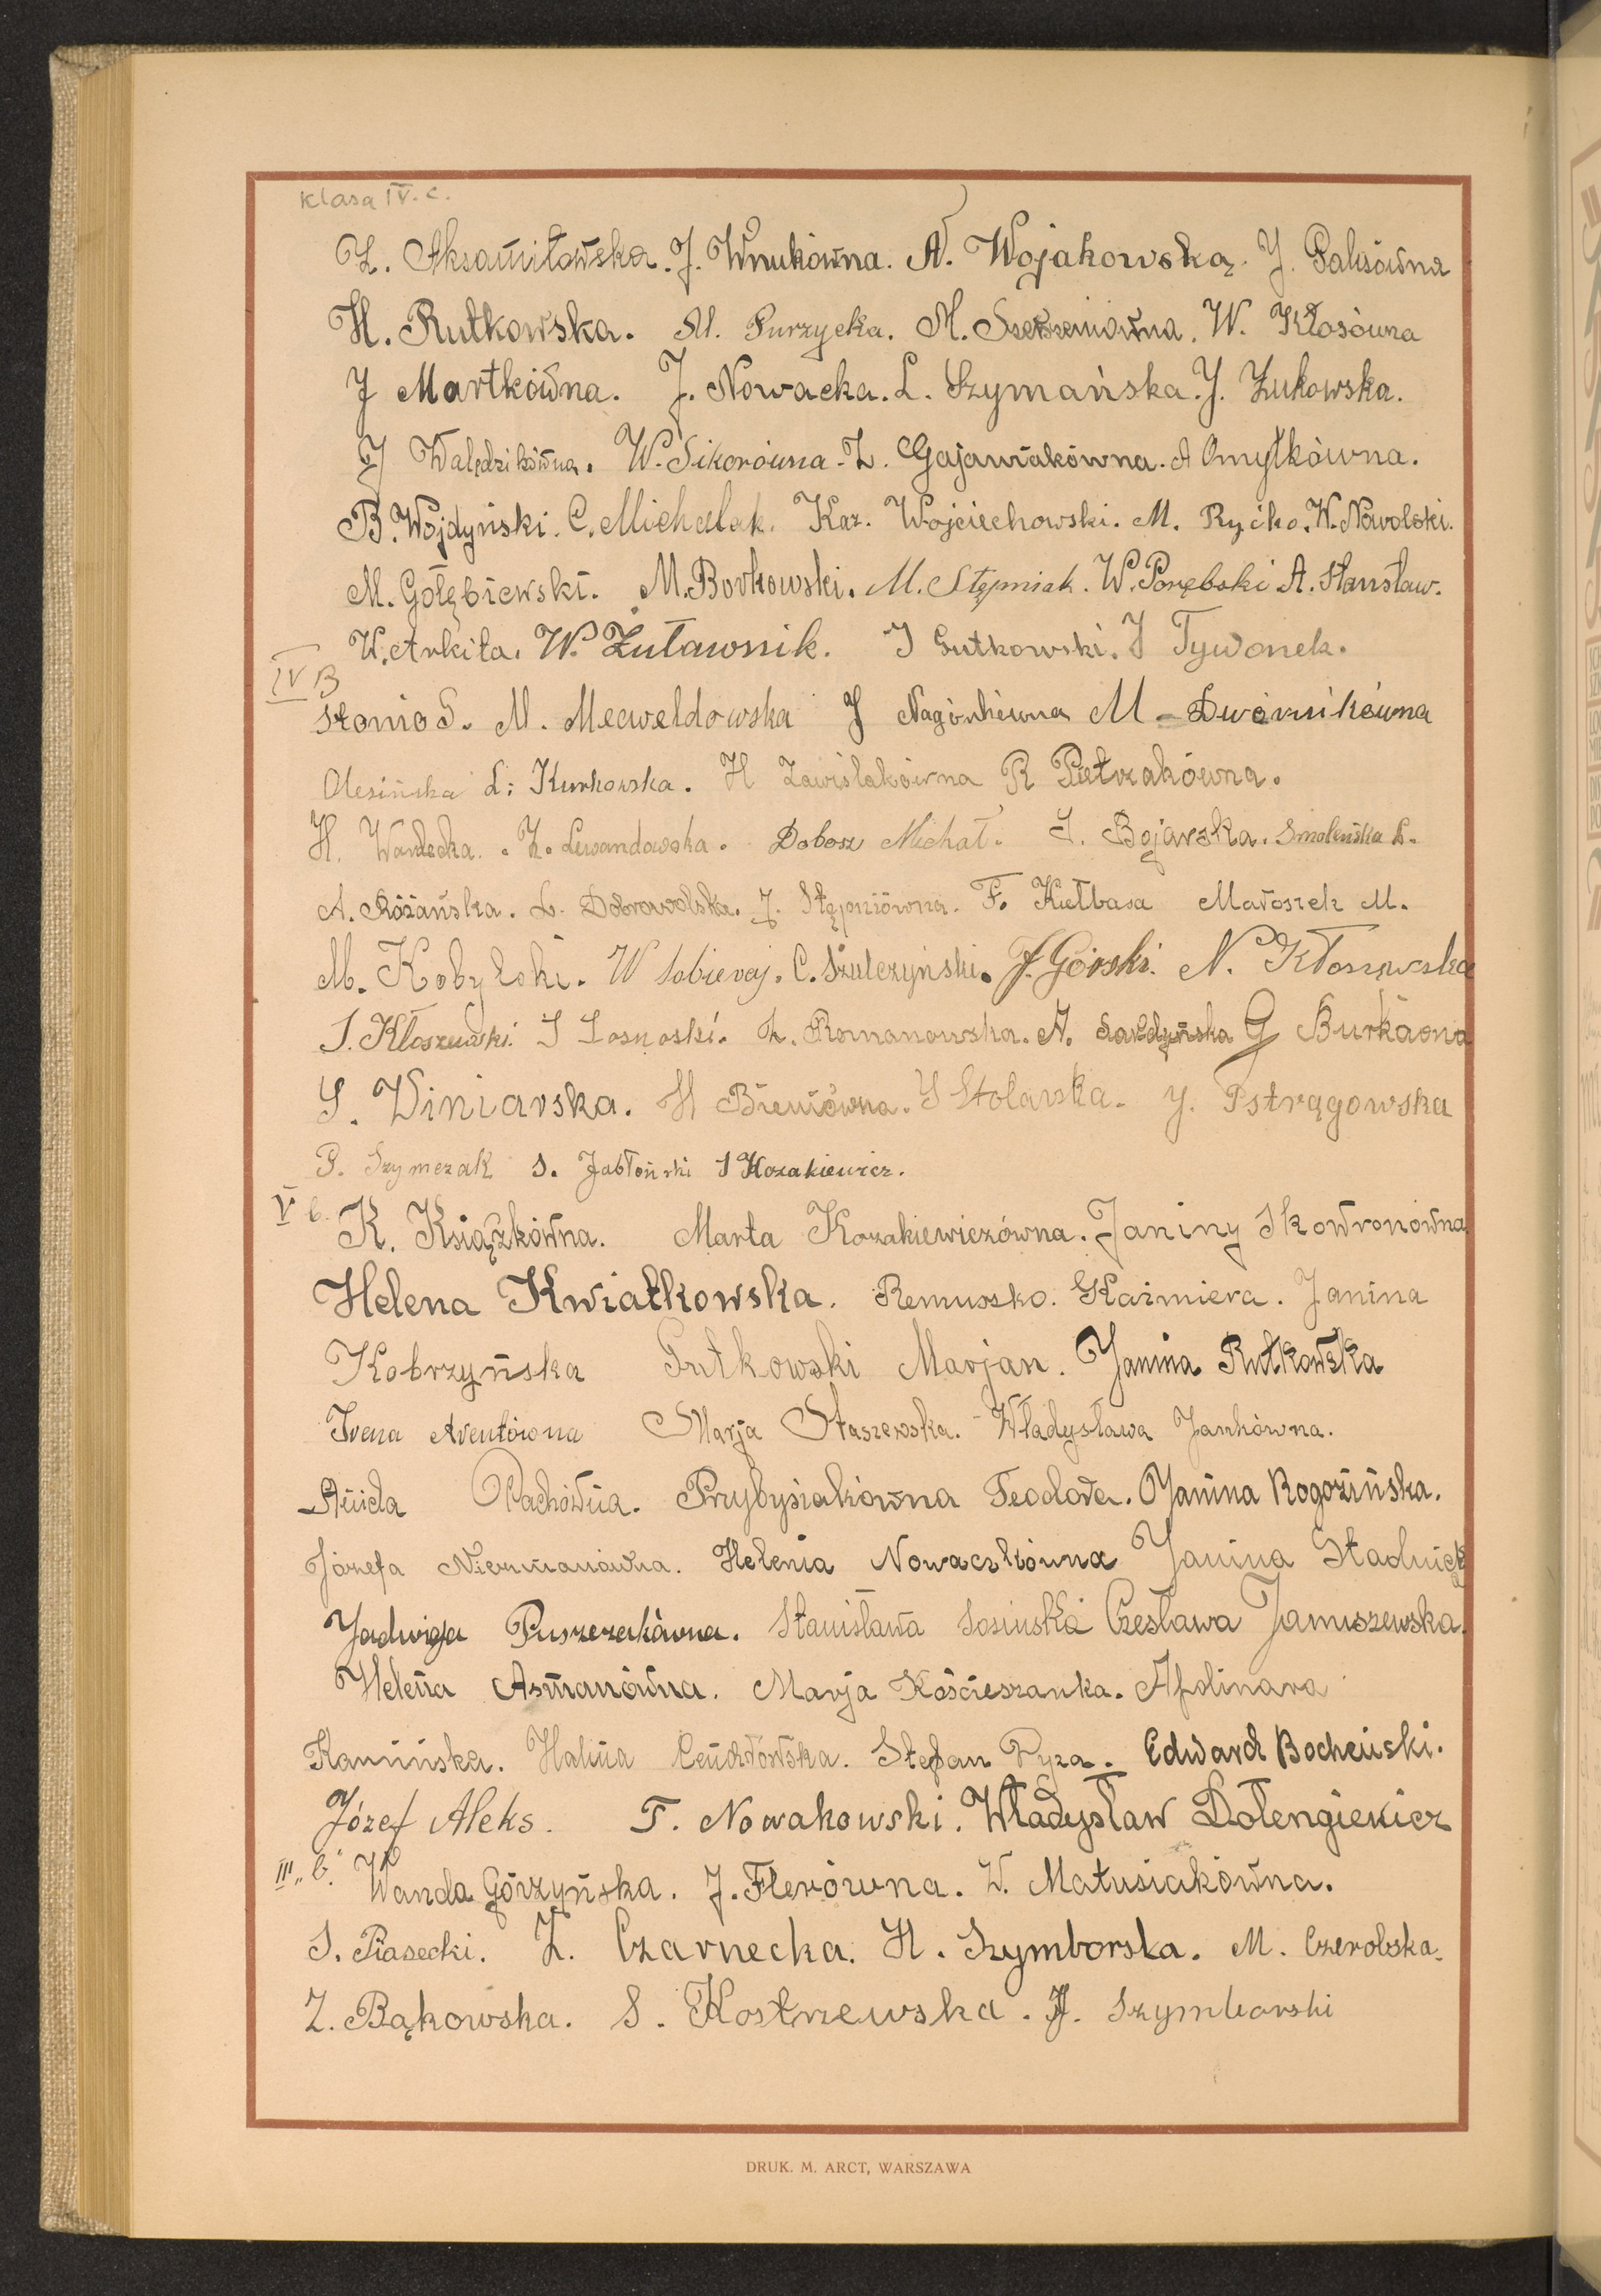 Klasa IV. c.
Z. Aksamitowska. J. Wnukówna. A. Wojakowska. J. Palusówna
H. Rutkowska. M. Purzycka. M. W. Kłosówna
J Martkówna. J. Nowacka. L. Szymańska. J. Żukowska.
J Walędzikówna. W. Sikorówna. Z. Gajawiakówna. A Omytkówna.
B. Wojdyński. C. Michalak. Kaz. Wojciechowski. M. Ryćko. W. Nowolski.
M. Gołębiewski. M. Borkowski. M. Stępniak. W. Porębski A. Stanisław.
W. Arkita. W. Żuławnik. J Gutkowski. J Tywonek.
IV B
Słomio S. M. Meweldowska J Nagórkówna M - Dwórnikówna
Olesińska L: Kurkowska. H Zawiślakówna R Pietrzakówna.
H. Wardecka. Z. Lewandowska. Dobosz Michał. I. Bojarska. Smoleńska L.
A. Różańska. L. Dobrowolska. J. Stępniówna. F. Kiełbasa Matosek M.
M. Kobylski. W Sobieraj. C. Szulczyński. J. Górski. N. Kłosowska
J. Kłoszewski. J Łosnoski. Z. Romanowska. A. G Burkaona
S. Winiarska. H Bieniówna. J Stolarska. J. Pstrągowska
P. Szymczak S. Jabłoński J Kozakiewicz.
V b. K. Książkówna. Marta Kozakiewiczówna. Janiny Skowronówna
Helena Kwiatkowska. Remuszko. Kazimiera. Janina
Kobrzyńska Putkowski Marjan. Janina Rutkowska
Irena Arentówna Marja Staszewska. Władysława Jankówna.
Aniela Pachówna. Przybysiakówna Teodora. Janina Rogozińska.
Józefa Niermanówna. Helenia Nowaczkówna Janina Stadnicka
Jadwiga Puszczakówna. Stanisława Sosińska Czesława Januszewska.
Helena Asmanówna. Marja Kościeszanka. Apolinara
Kamińska. Halina Cendrowska. Stefan Pyza. Edward Bocheński.
Józef Aleks. T. Nowakowski. Władysław Dołengiewicz
III „b". Wanda Górzyńska. J. Flerówna. W. Matusiakówna.
S. Piasecki. Z. Czarnecka. H. Szymborska. M. Czerobska.
Z. Bąkowska. S. Kostrzewska. J. Szymborski
DRUK. M. ARCT, WARSZAWA